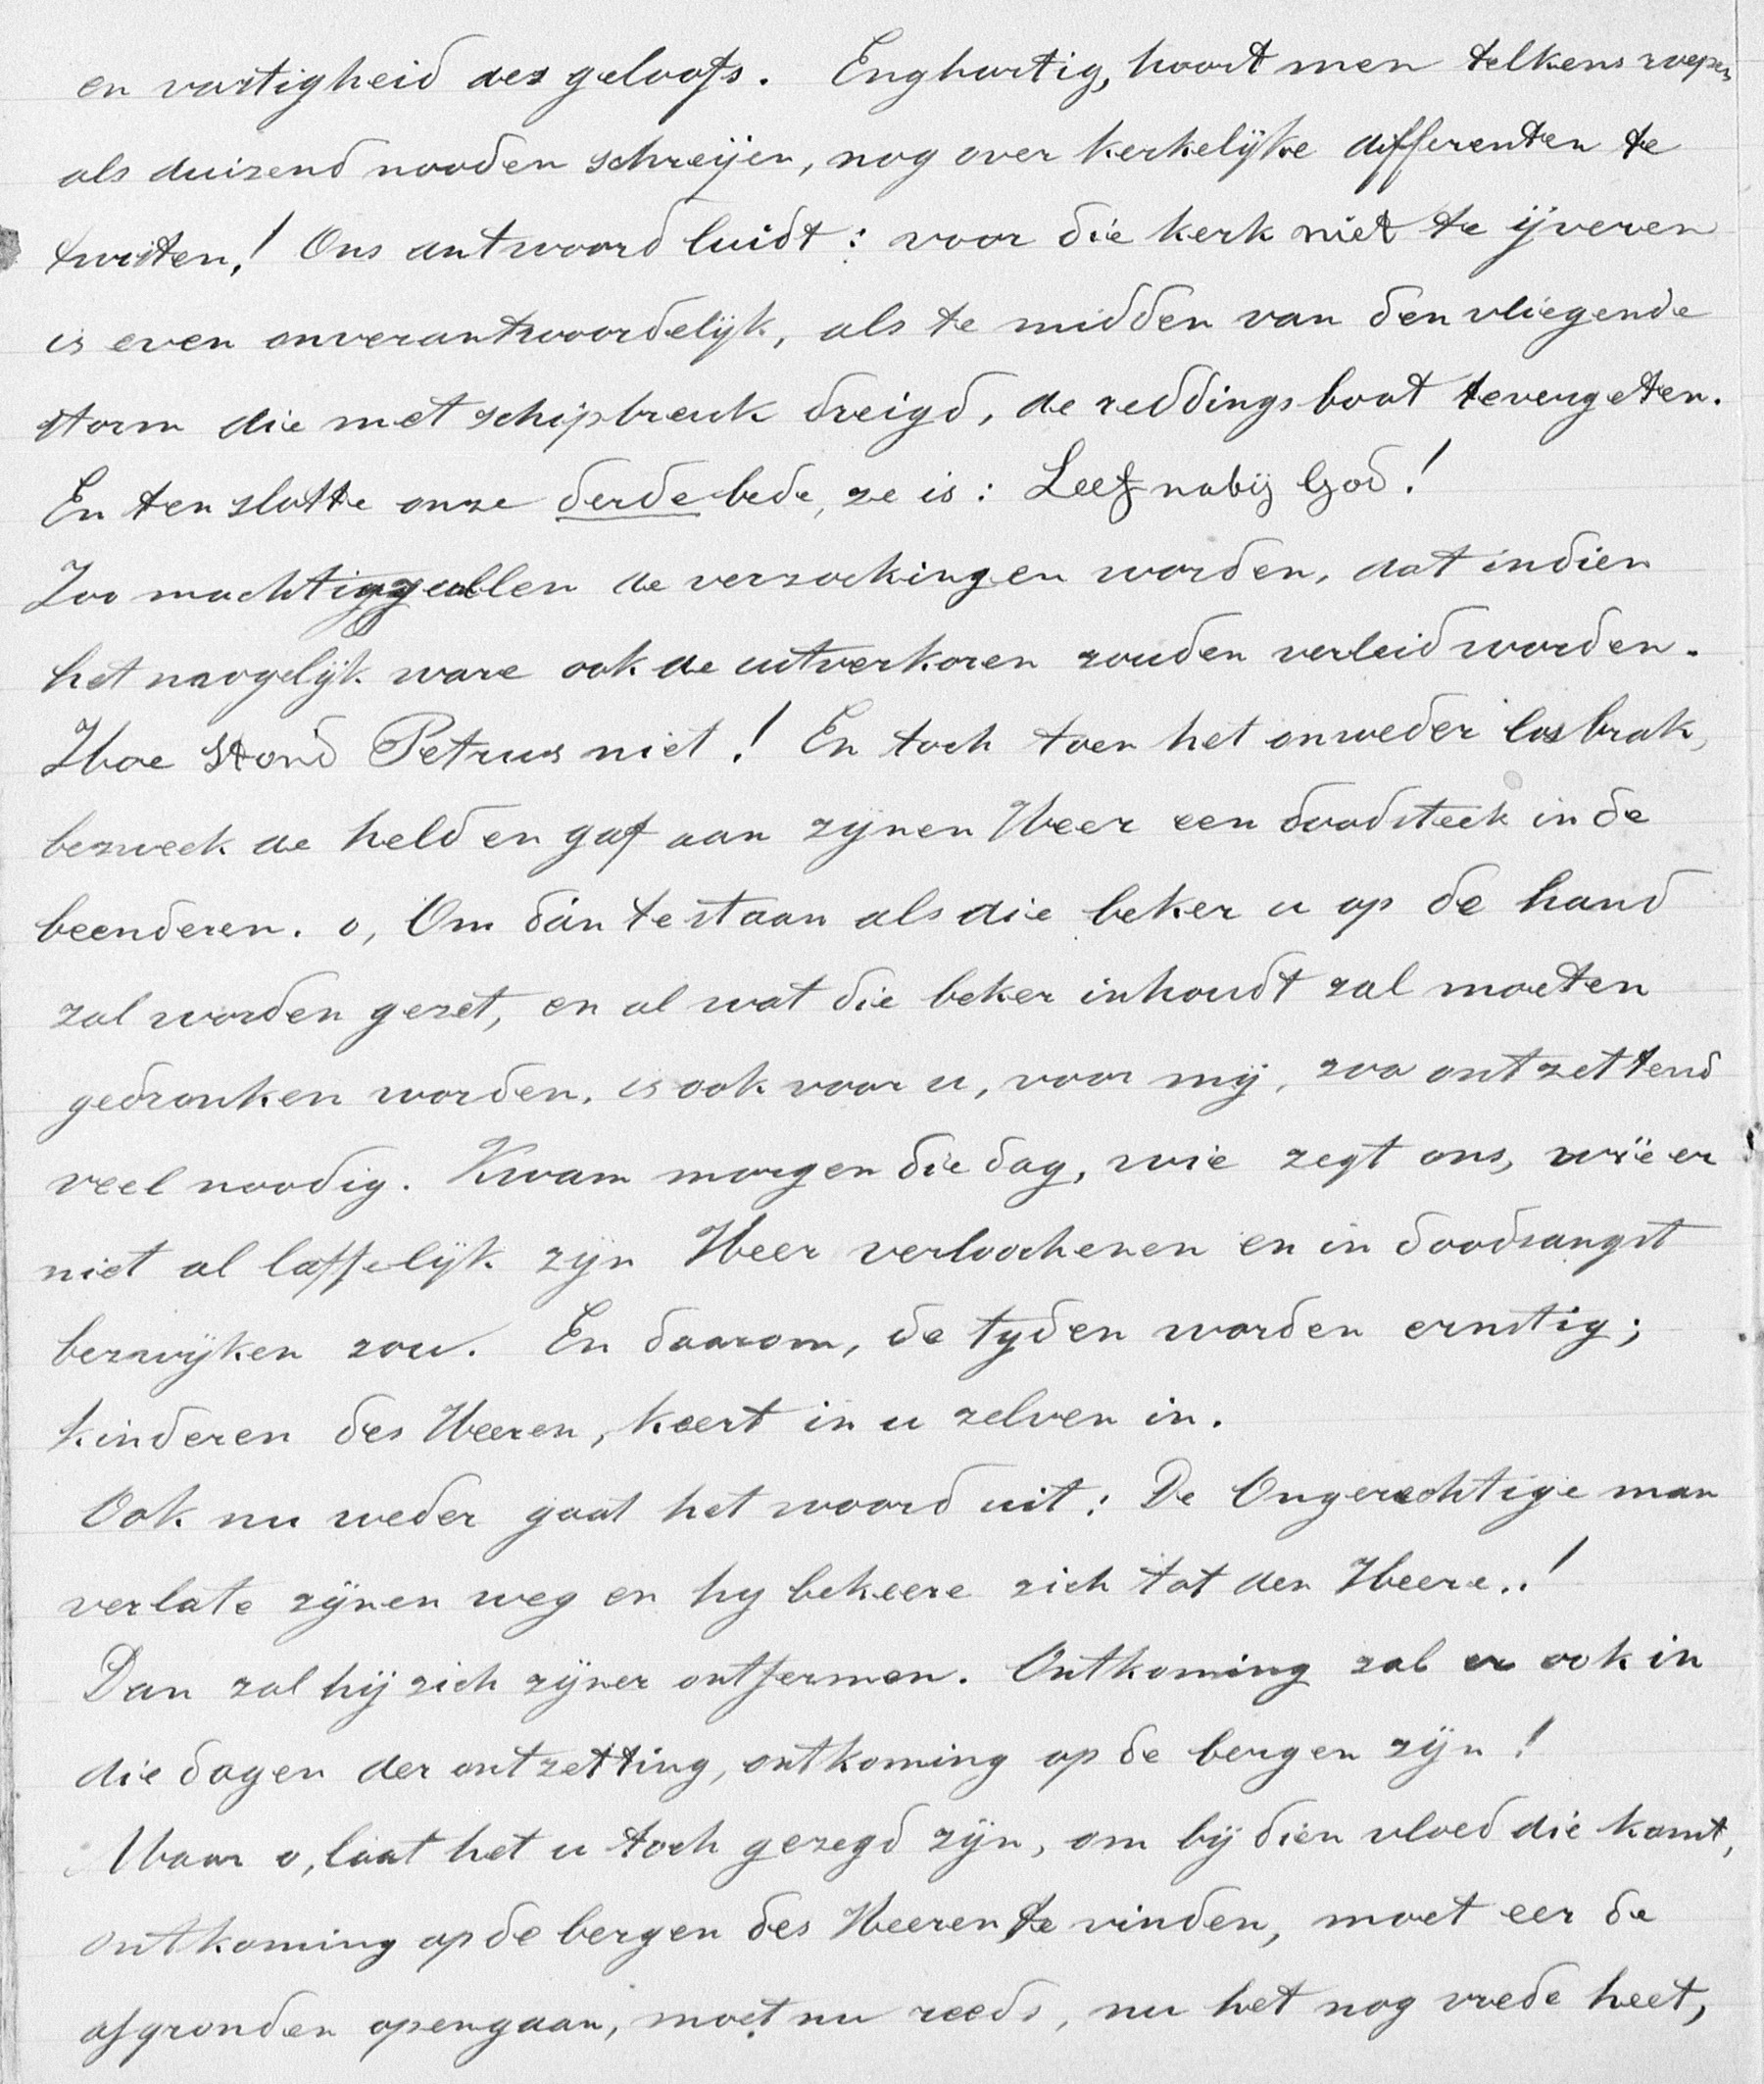 en vastigheid des geloofs. Enghartig, hoort men telkens roepen
als duizend nooden schreijen, nog over kerkelijke differenten te
twisten,! Ons antwoord luidt: voor die kerk niet te ijveren
is even onverantwoordelijk, als te midden van den vliegende
storm die met schipbreuk dreigd, de reddingsboot te vergeten.
En ten slotte onze derde bede, ze is: Leef nabij God!
Zoo machtig zullen de verzoekingen worden, dat indien
het mogelijk ware ook de uitverkoren zouden verleid worden.
Hoe stond Petrus niet! En toch toen het onweder losbrak,
bezweek de held en gaf aan zijnen Heer een doodsteek in de
beenderen. o, Om dán te staan als die beker u op de hand
zal worden gezet, en al wat die beker inhoudt zal moeten
gedronken worden, is ook voor u, voor mij, zoo ontzettend
veel noodig. Kwam morgen die dag, wie zegt ons, wie er
niet al laffelijk zijn Heer verloochenen en in doodsangst
bezwijken zou. En daarom, de tyden worden ernstig;
kinderen des Heeren, keert in u zelven in.
Ook nu weder gaat het woord uit: De Ongerechtige man
verlate zijnen weg en hy bekeere zich tot den Heere..!
Dan zal hij zich zijner ontfermen. Ontkoming zal er ook in
die dagen der ontzetting, ontkoming op de bergen zijn!
Maar o, laat het u toch gezegd zijn, om bij dien vloed die komt,
ontkoming op de bergen des Heeren te vinden, moet eer de
afgronden opengaan, moet nu reeds, nu het nog vrede heet,